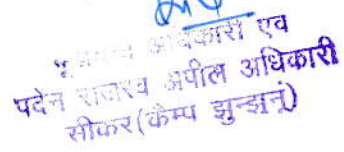 अधिकारी एव
पदेन राजस्व अपील अधिकारी
सीकर(केम्प झुन्झुनूं)